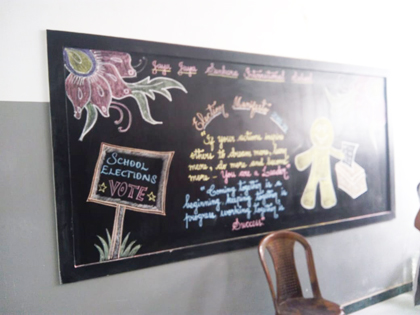 Jaya Jaya Sankara International School
Election Manifest
SCHOOL
ELECTIONS
VOTE
"If your actions inspire
others to dream more, learn
more, do more and become
more - You are a Leader"
"Coming together is a
beginning, keeping together is
progress, working together is
Success."